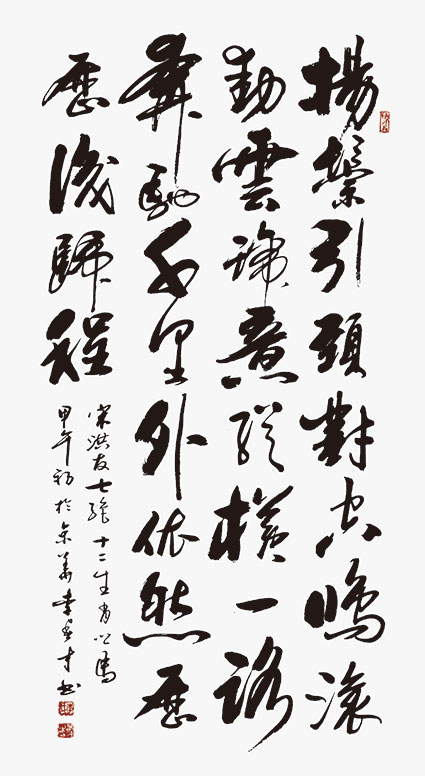 揚鬃引頸對空鳴滾
動雲蹄意縱橫一路
奔馳千里外依然歷
歷識歸程
宋洪友七絕十二生肖之馬
甲午初於京華李才書